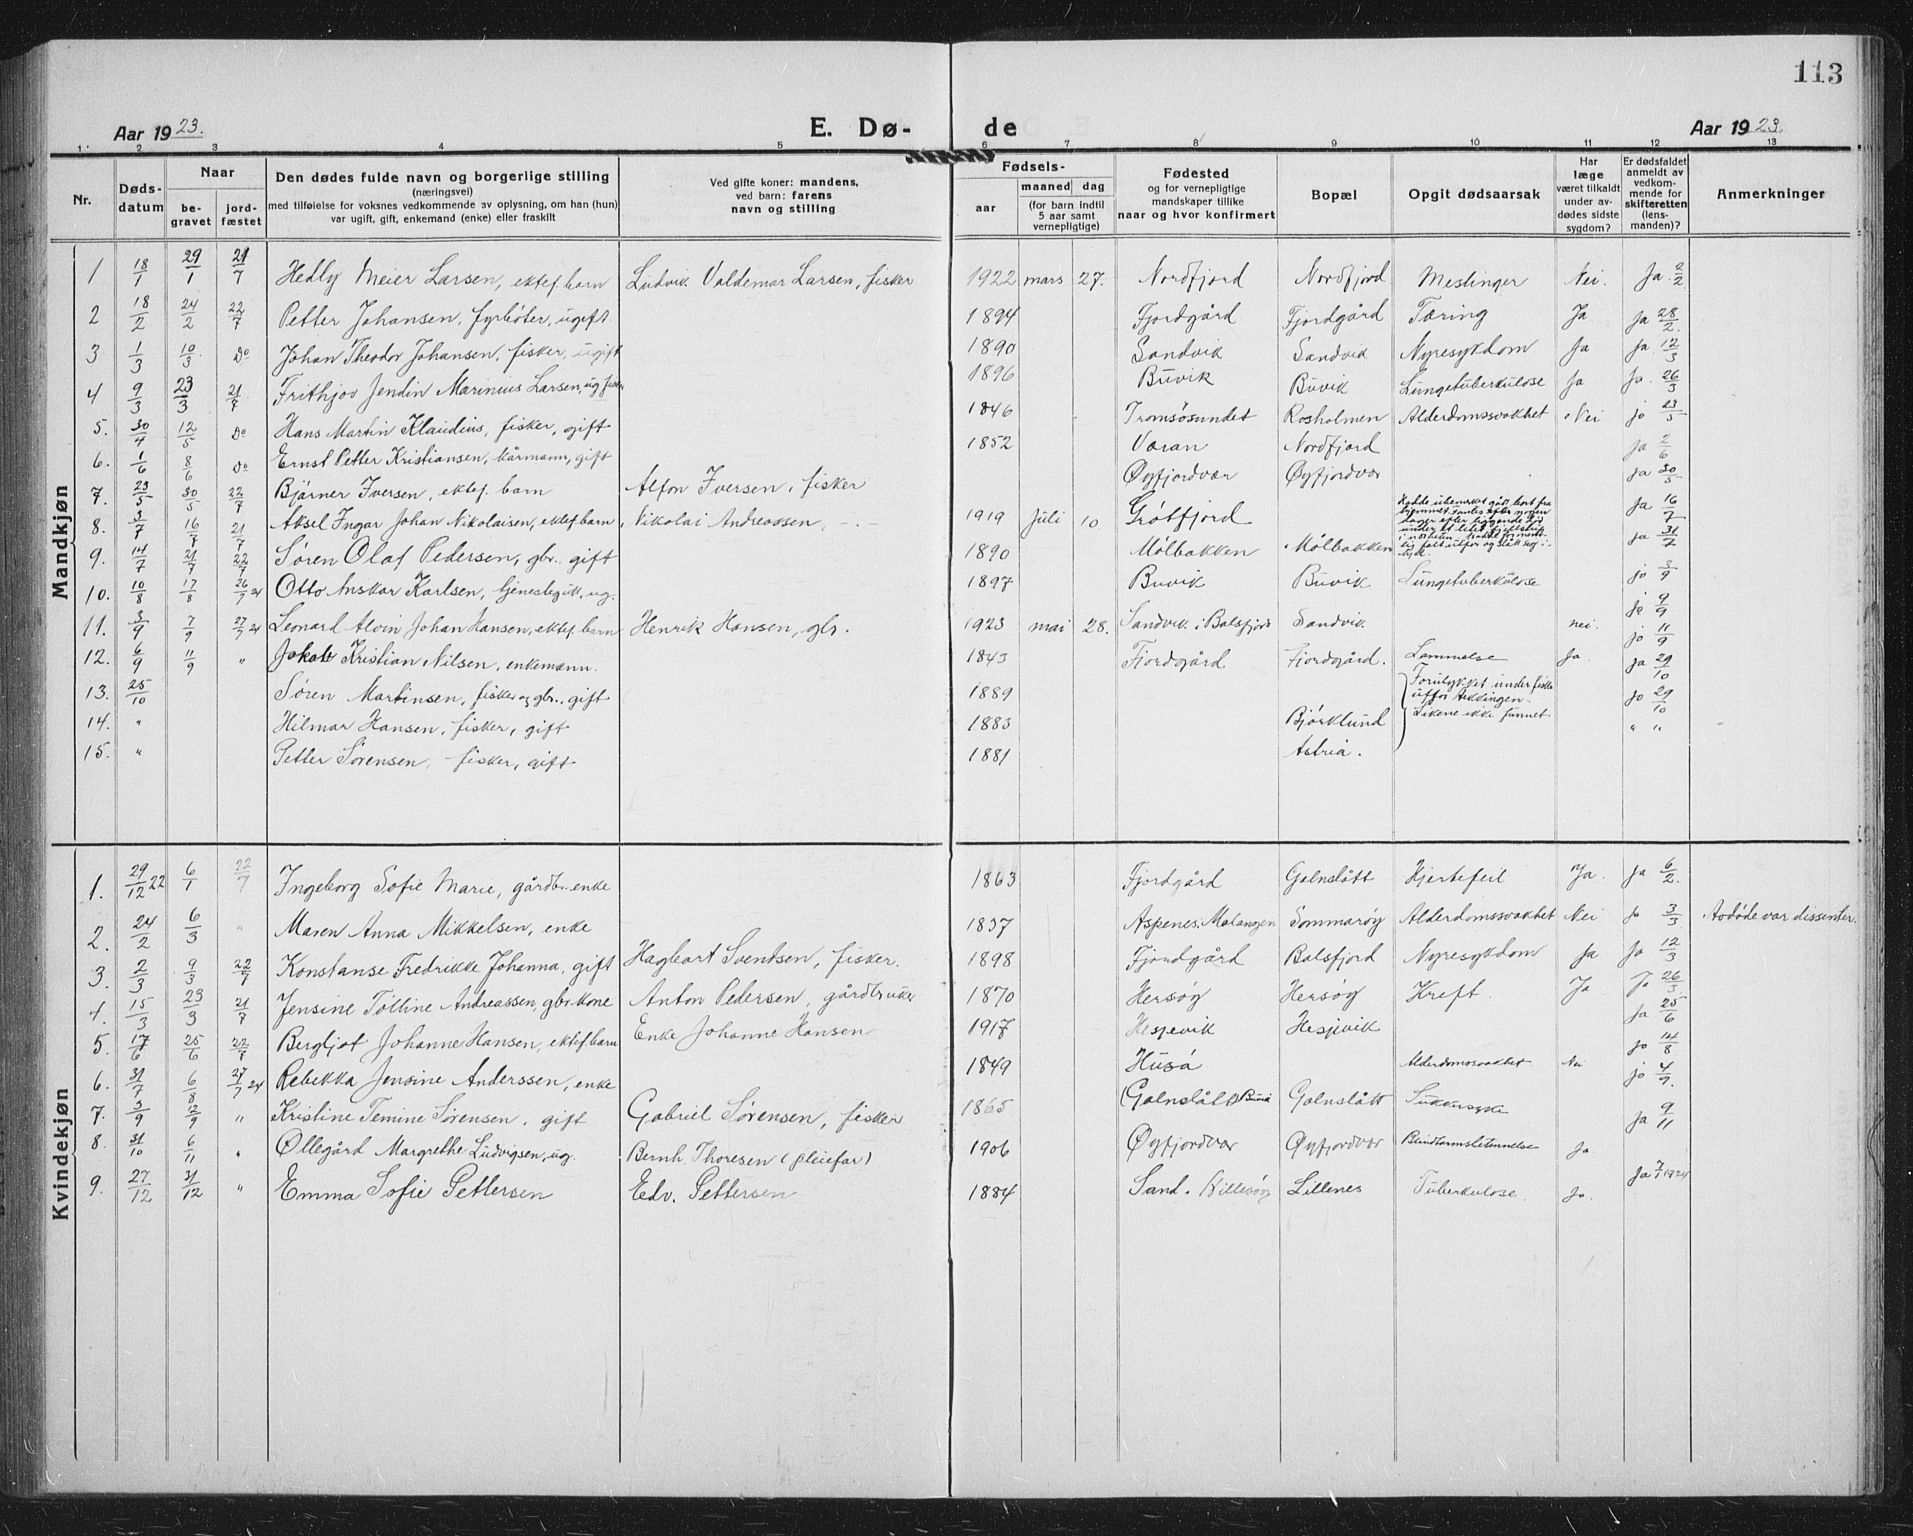 113
Aar 1923.
E. Dø- de
Aar 1923.
1 2 3 4 5 6 7 8 9 10 11 12 13
Nr.
Døds-datum
Naar
be-gravet
jord-fæstet
Den dødes fulde navn og borgerlige stilling
(næringsvei)
med tilføielse for voksnes vedkommende av oplysning, om han (hun)
var ugift, gift, enkemand (enke) eller fraskilt
Ved gifte koner: mandens,
ved barn: farens
navn og stilling
Fødsels-
aar
maaned dag
(for barn indtil
5 aar samt
vernepligtige)
Fødested
og for vernepligtige
mandskaper tillike
naar og hvor konfirmert
Bopæl
Opgit dødsaarsak
Har
læge
været tilkaldt
under av-
dødes sidste
sygdom?
Er dødsfaldet
anmeldt av
vedkom-
mende for
skifteretten
(lens-
manden)?
Anmerkninger
Mandkjøn
1 18/1 29/1 21/7 Hedly Meier Larsen, ektef. barn Ludvik Valdemar Larsen, fisker 1922 mars 27. Nordfjord Nordfjord Meslinger Nei. Ja 2/2
2 18/2 24/2 22/7 Petter Johansen, fyrbøter, ugift 1894 Fjordgård Fjordgård Tæring Ja Ja 28/2.
3 1/3 10/3 Do Johan Theodor Johansen, fisker, ugift 1890 Sandvik Sandvik Nyresykdom Ja Ja 12/3
4 9/3 23/3 21/7 Frithjov Jendin Marinius Larsen, ug. fisker 1896 Buvik Buvik Lungetuberkulose Ja Ja 26/3
5. 30/4 12/5 Do Hans Martin Klaudius, fisker, gift 1846 Tromsøsundet Rosholmen Alderdomssvakhet Nei jo 23/5
6. 1/6 8/6 Do Ernst Petter Kristiansen, kårmann, gift 1852 Væran Nordfjord Ja 2/6
7. 23/5 30/5 22/7 Bjørner Iversen, ektef. barn Alfon Iversen, fisker Øyfjordvær Øyfjordvær Ja 30/5
8. 3/7 16/7 21/7 Aksel Ingar Johan Nikolaisen, ektef. barn Nikolai Andreassen, -.- 1919 Juli 10 Grøtfjord Hadde ubemerket gått bort fra hjemmet Ja 16/7
9. 14/7 21/7 22/7 Søren Olaf Pedersen, gbr. gift 1890 Mølbakken Mølbakken Ja 31/7
10. 10/8 17/8 26/7 24 Otto Anskar Karlsen, tjenestegutt, ug. 1897 Buvik Buvik Lungetuberkulose jo 3/9
11. 3/9 7/9 27/7 24 Leonard Alvin Johan Hansen, ektef. barn Henrik Hansen, gbr. 1923 mai 28. Sandvik i Balsfjord Sandvik nei. ja 9/9
12. 6/9 11/9 " Jakob Kristian Nilsen, enkemann. 1843 Fjordgård Fjordgård. Lammelse Ja jo 11/9
13. 25/10 Søren Martinsen, fisker og gbr., gift 1889 Forulykket under fiske Ja 29/10
14. " Hilmar Hansen, fisker, gift 1883 Bjørklund Likene ikke funnet. jo 29/10
15. " Petter Sørensen, fisker, gift 1881 Astria. " "
Kvindekjøn
1. 29/12 22 6/1 22/7 Ingeborg Sofie Marie, gårdbr. enke 1863 Fjordgård Galnslått Hjertefeil Ja. Ja 6/2.
2. 24/2 6/3 " Maren Anna Mikkelsen, enke 1837 Aspenes, Malangen Sommarøy Alderdomssvakhet Nei Jo 3/3 Avdøde var dissenter.
3. 2/3 9/3 22/7 Konstanse Fredrikke Johanna, gift Hagbart Sventsen, fisker. 1898 Fjordgård Balsfjord Nyresykdom Ja Ja 12/3
4. 15/3 23/3 21/7 Jensine Tolline Andreassen, gbr. kone Anton Pedersen, gårdbruker 1870 Hersøy Hersøy Kreft. Ja Jo 26/3
5. 17/6 25/6 22/7 Bergljot Johanne Hansen, ektef. barn Enke Johanne Hansen 1917 Hesjevik Hesjevik Ja 25/6
6. 31/7 6/8 27/7 24 Rebekka Jensine Anderssen, enke 1849 Husø Alderdomssvakhet Nei jo 14/8
7. 3/9 12/9 " Kristine Temine Sørensen, gift Gabriel Sørensen, fisker 1865 Galnslått Galnslått Sukkersyke jo 4/9.
8. 31/10 6/11 " Øllegård Margrethe Ludvigsen, ug. Bernh. Thoresen (pleiefar) 1906 Øyfjordvær Øyfjordvær Blindtarmsbetennelse Ja. Ja 9/11
9. 27/12 31/12 " Emma Sofie Pettersen Edv. Pettersen 1884 Sand. Hillesøy Lillenes Tuberkulose. Ja. Ja 7/1 1924